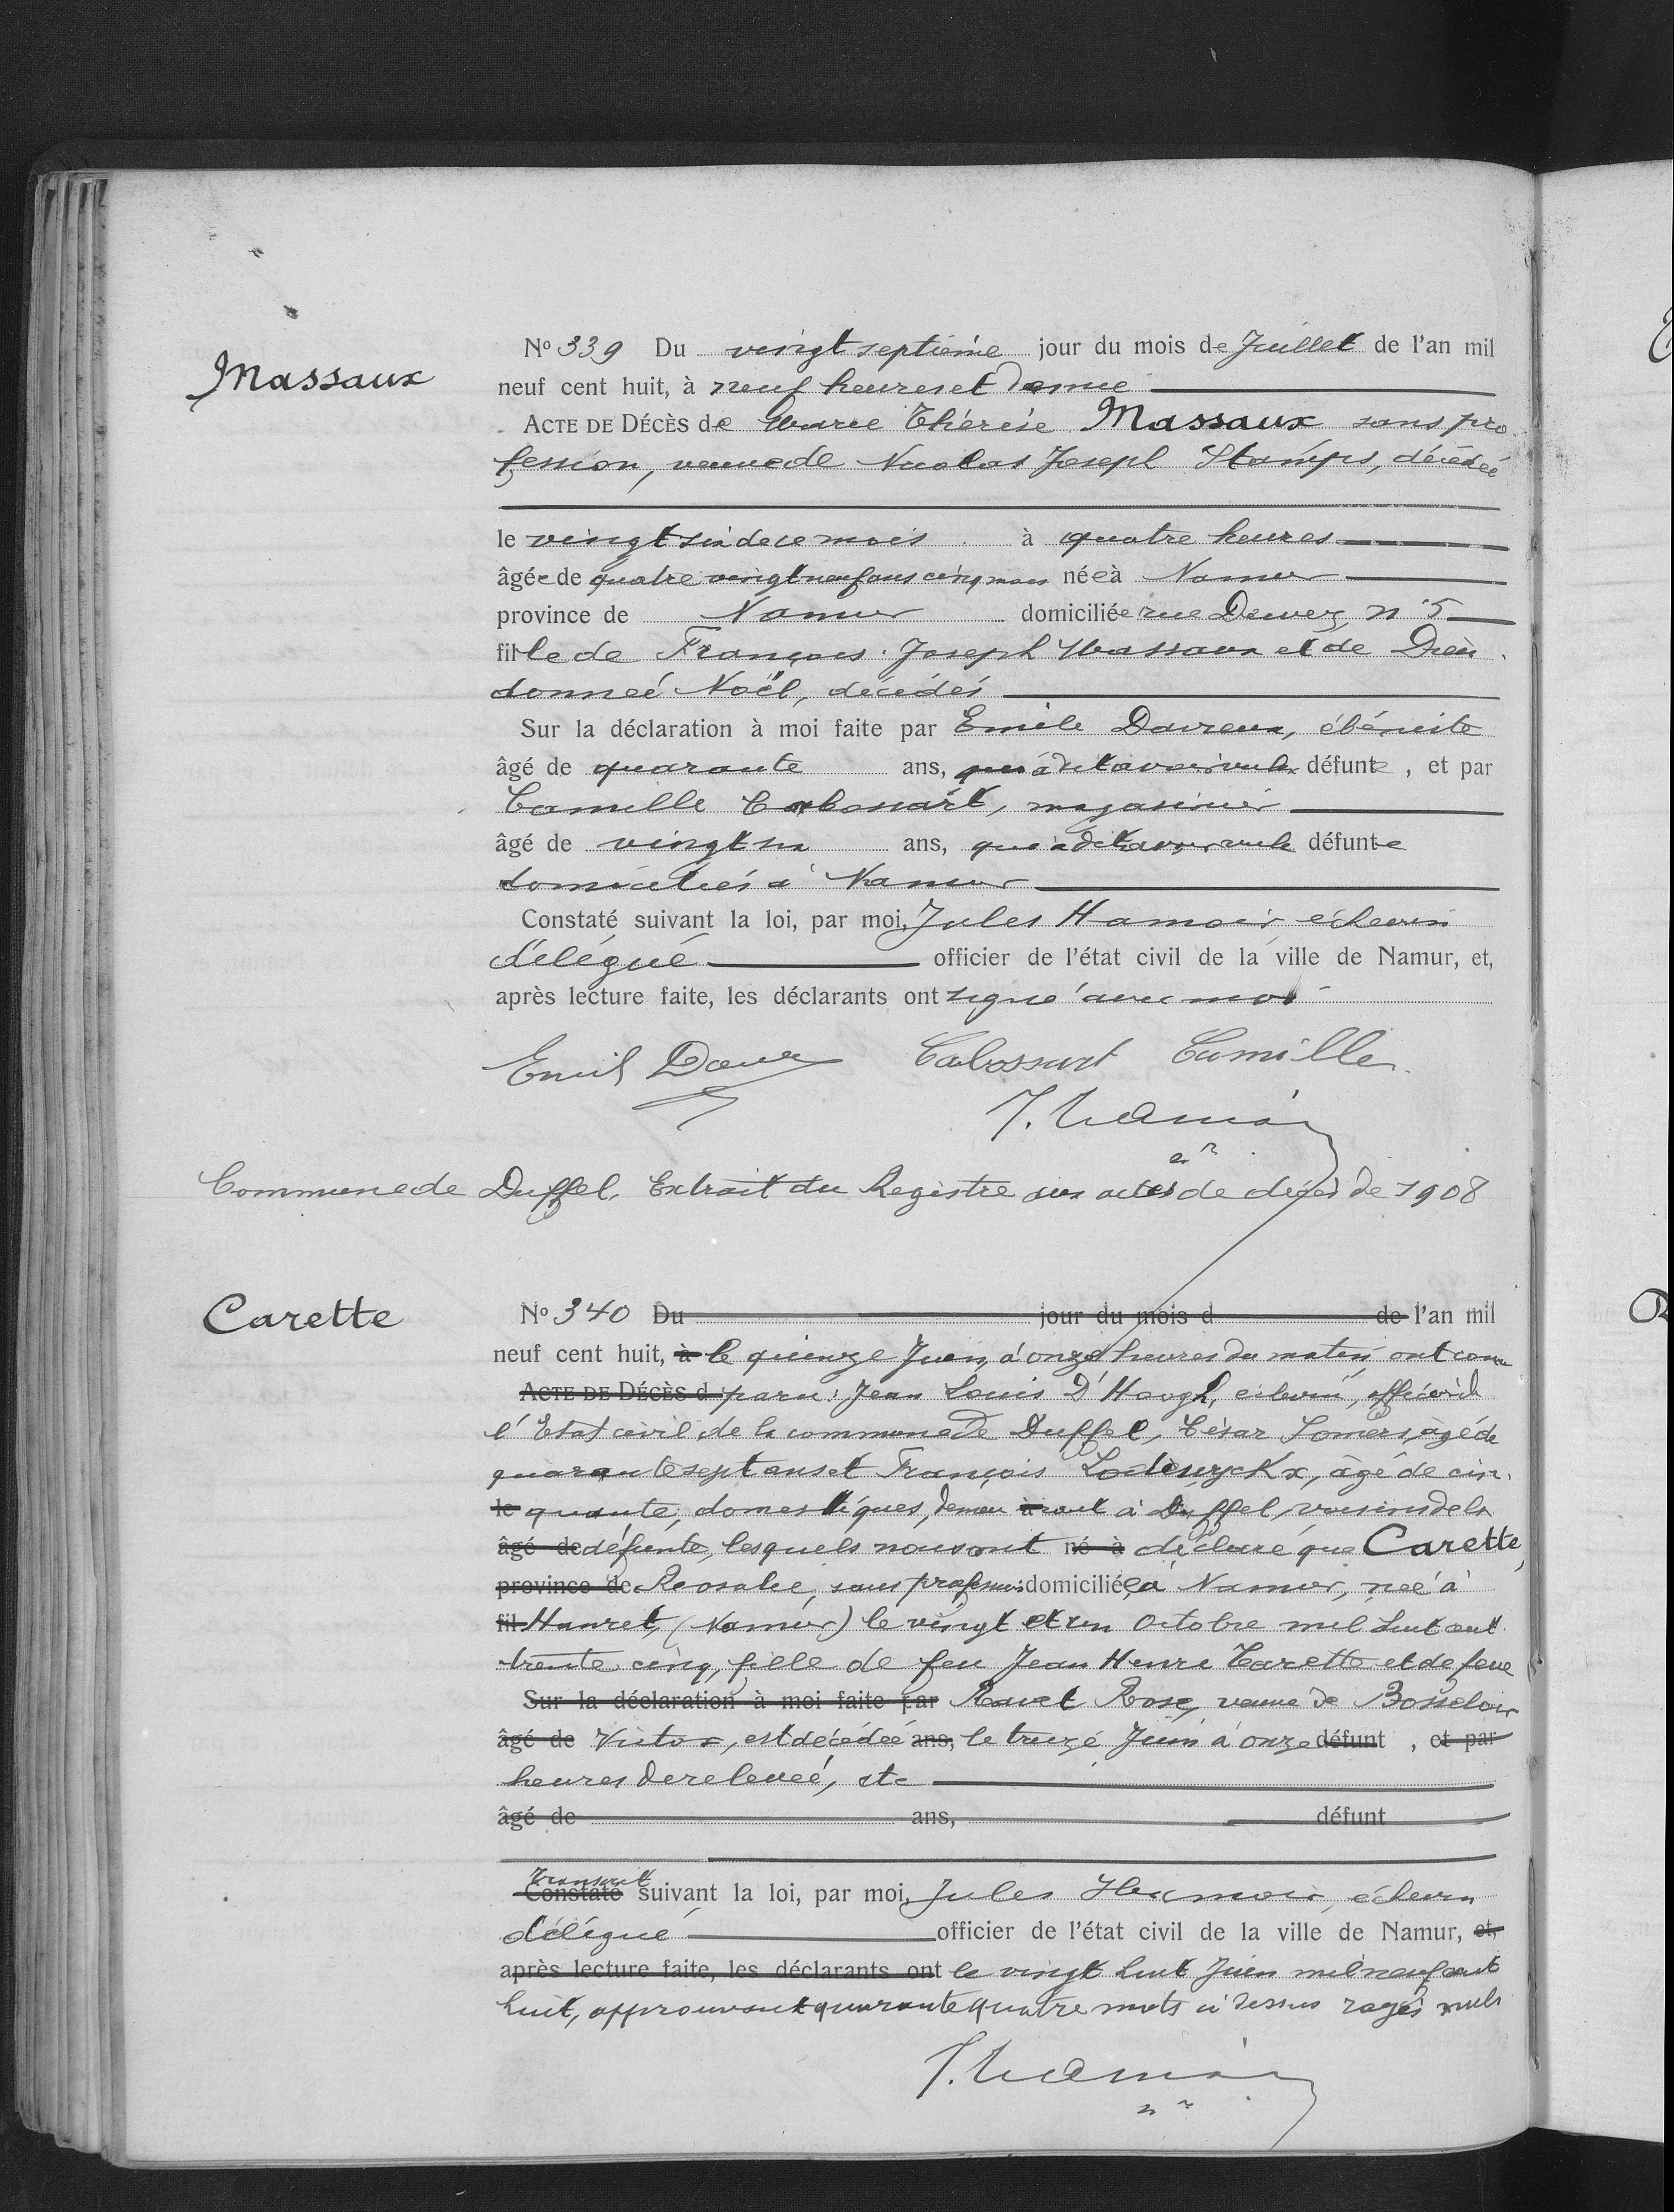 Massaux
Nº 339 Du vingt septième jour du mois de Juillet de l'an mil
neuf cent huit, à neuf heures et demie
ACTE DE DÉCÈS de Marie Thérèse Massaux sans pro
fession, veuve de Nicolas Joseph Stamps, décédée
le vingt six de ce mois à quatre heures
âgée de quatre vingt neuf ans cinq mois née à Namur
province de Namur domiciliée rue Dewez, nº 5
fille de François Joseph Massaux et de Dieu
donnée Noël, décédés
Sur la déclaration à moi faite par Emile Davreux, ébéniste
âgé de quarante ans, qui a dit avoir vu la défunte, et par
Camille Cabossart, magasinier
âgé de vingt six ans, qui a dit avoir vu la défunte
domiciliés à Namur
Constaté suivant la loi, par moi, Jules Hamoir échevin
délégué officier de l'état civil de la ville de Namur, et,
après lecture faite, les déclarants ont signé avec moi
Emile Cabossart Camille
J. Hamoir
Commune de Duffel. Extrait du Registre aux actes de décès de 1908
Carette
Nº 340 Du jour du mois d de l'an mil
neuf cent huit, à le quinze Juin, à onze heures du matin ont com
ACTE DE DÉCÈS d paru: Jean Louis D'Hoogh, échevin, officier de
l'Etat civil de la commune de Duffel, César Somers, âgé de
quarante sept ans et François Lodewyckx, âgé de cin
le quante, domestiques, demeu à rant à Duffel, voisins de la
âgé de défunte, lesquels nous ont né à déclaré que Carette,
province de Rosalie, sans profession domiciliée à Namur, née à
fil Hanret, (Namur) le vingt et un Octobre mil huit cent
trente cinq, fille de feu Jean Henri Carette et de feue
Sur la déclaration à moi faite par Ravet Rose, veuve de Bosseloir
âgé de Victor, est décédée ans, le treize Juin à onze défunt , et par
heures de relevée, etc
âgé de ans, défunt
Transcrit
Constaté suivant la loi, par moi, Jules Hamoir, échevin
délégué officier de l'état civil de la ville de Namur, et,
après lecture faite, les déclarants ont le vingt huit Juin mil neuf cent
huit, approuvant quarante quatre mots ci dessus rayés nuls
J. Hamoir